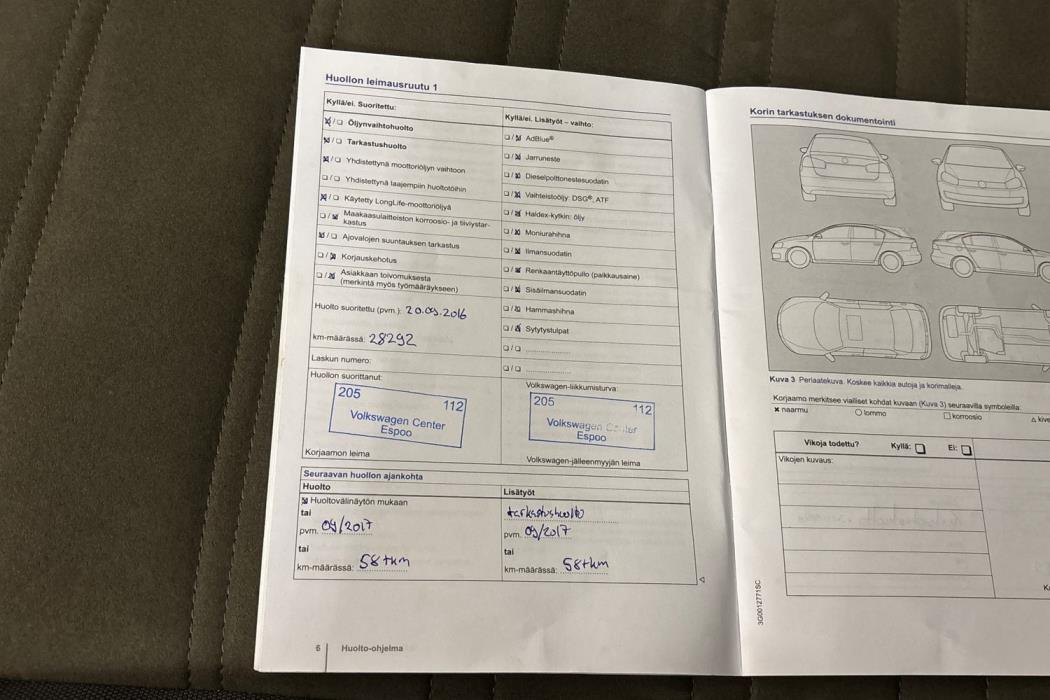 Huollon leimausruutu 1
Kyllä/ei. Suoritettu:
☒/☐ Öljynvaihtohuolto
☒/☐ Tarkastushuolto
☒/☐ Yhdistettynä moottoriöljyn vaihtoon
☐/☐ Yhdistettynä laajempiin huoltotöihin
☒/☐ Käytetty LongLife-moottoriöljyä
☐/☒ Maakaasulaitteiston korroosio- ja tiiviystar-
kastus
☒/☐ Ajovalojen suuntauksen tarkastus
☐/☒ Korjauskehotus
☐/☒ Asiakkaan toivomuksesta
(merkintä myös työmääräykseen)
Huolto suoritettu (pvm.): 20.09.2016
km-määrässä: 28292
Laskun numero:
Huollon suorittanut:
205
112
Volkswagen Center
Espoo
Korjaamon leima
Kyllä/ei. Lisätyöt – vaihto:
☐/☒ AdBlue®
☐/☒ Jarruneste
☐/☒ Dieselpolttonestesuodatin
☐/☒ Vaihteistoöljy: DSG®, ATF
☐/☒ Haldex-kytkin: öljy
☐/☒ Moniurahihna
☐/☒ Ilmansuodatin
☐/☒ Renkaantäyttöpullo (paikkausaine)
☐/☒ Sisäilmansuodatin
☐/☒ Hammashihna
☐/☒ Sytytystulpat
☐/☐
☐/☐
Volkswagen-liikkumisturva:
205
112
Volkswagen Center
Espoo
Volkswagen-jälleenmyyjän leima
Seuraavan huollon ajankohta
Huolto
☒ Huoltovälinäytön mukaan
tai
pvm. 09/2017
tai
km-määrässä: 58tkm
Lisätyöt
tarkastushuolto
pvm. 09/2017
tai
km-määrässä: 58tkm
6 Huolto-ohjelma
Korin tarkastuksen dokumentointi
Kuva 3 Periaatekuva. Koskee kaikkia autoja ja korimalleja.
Korjaamo merkitsee vialliset kohdat kuvaan (Kuva 3) seuraavilla symboleilla:
✖ naarmu ○ lommo ☐ korroosio △ kive
Vikoja todettu? Kyllä: ☐ Ei: ☐
Vikojen kuvaus:
3G0012771SC